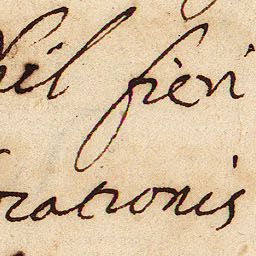 hil fieri
rationis